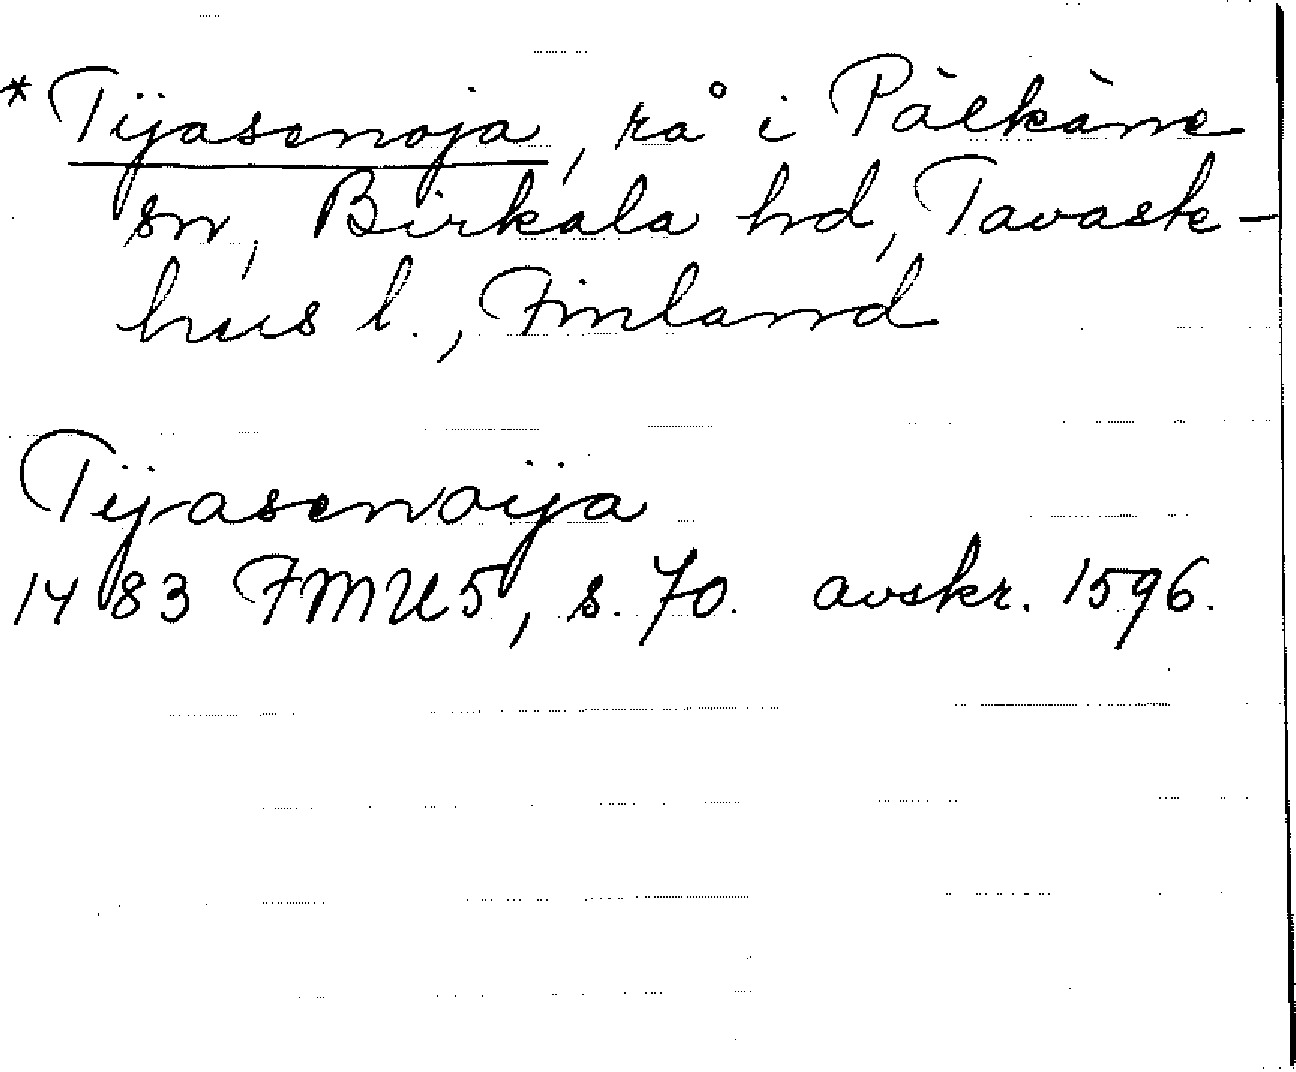 *Tijasenoja, rå i Pälkäne
sn, Birkala hd, Tavast-
hus l., Finland
Tijasenoija
1483 FMU5, s. 70. avskr. 1596.